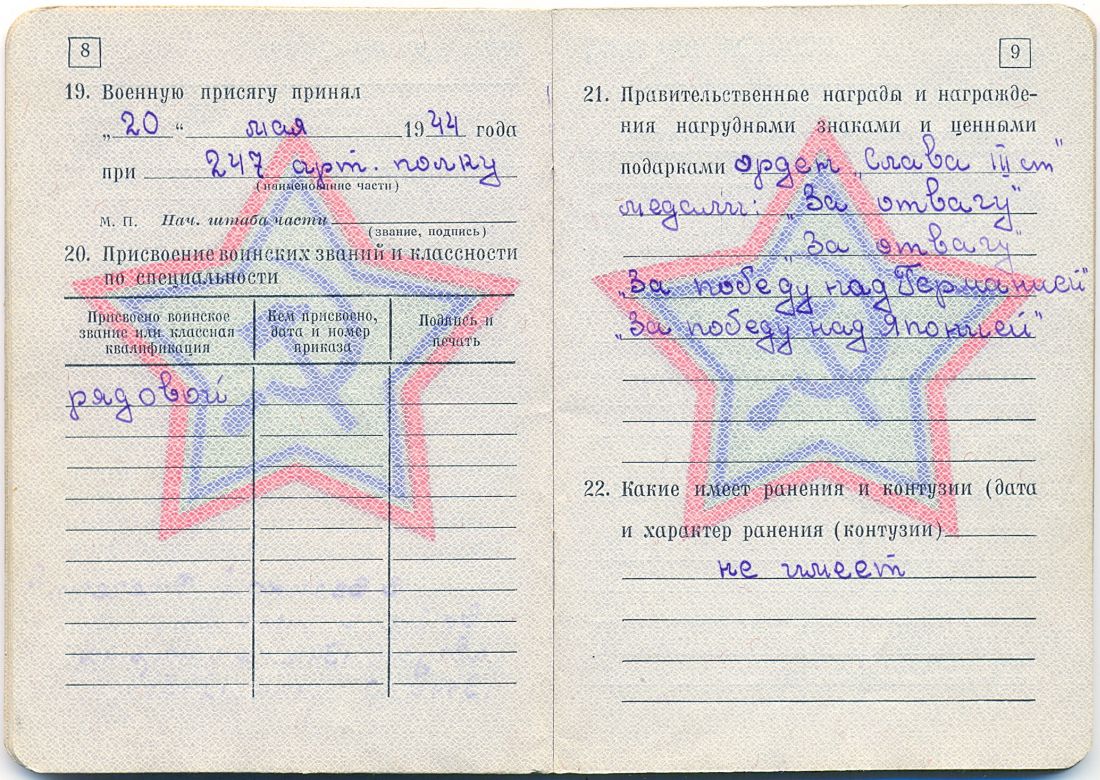 8
19. Военную присягу принял
„20“ мая 1944 года
при 247 арт. полку
(наименование части)
М. П. Нач. штаба части
(звание, подпись)
20. Присвоение воинских званий и классности
по специальности
Присвоено воинское звание или классная квалификация
Кем присвоено, дата и номер приказа
Подпись и печать
рядовой
9
21. Правительственные награды и награжде-
ния нагрудными знаками и ценными
подарками орден „Слава III ст"
медалы: „За отвагу"
„За отвагу"
„За победу над Германией"
„За победу над Японией"
22. Какие имеет ранения и контузии (дата
и характер ранения (контузии)
не имеет